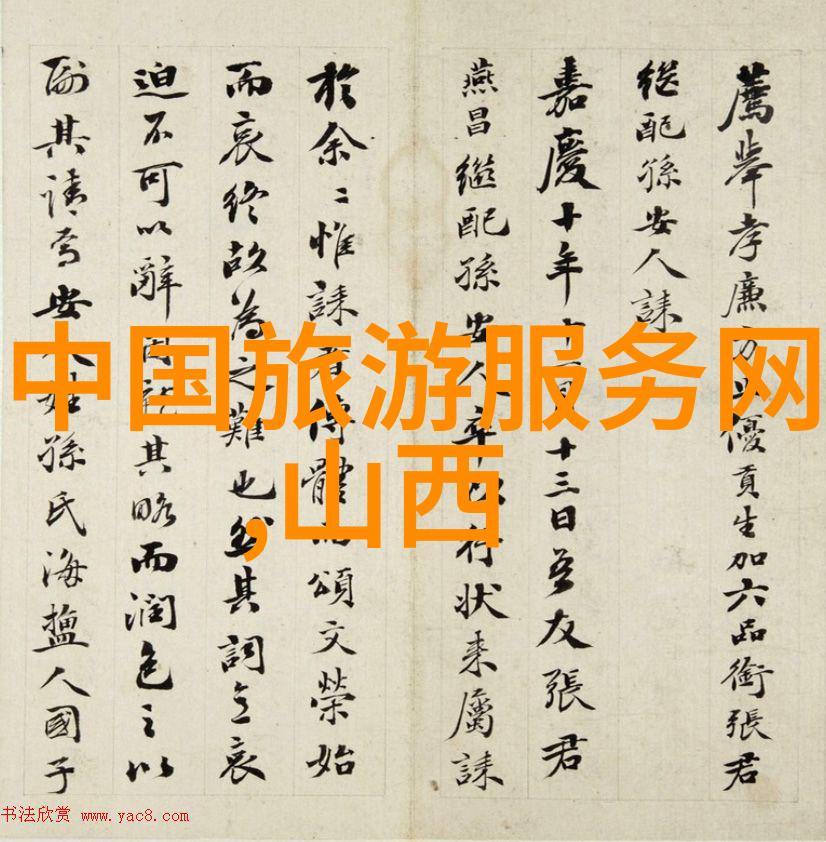 薦舉孝廉方正優貢生加六品銜張君
继配孫安人誄
嘉慶十年十二月十三日吾友張君
燕昌繼配孫安人卒以行状来屬誄
於余〻惟誄者傳體而頌文榮始
而哀終故為之難也然其詞哀
迫不可以辭因其略而潤色之以
副其請焉安人姓孫氏海鹽人國子
中国旅游服务网
,山西
书法欣赏 www.yac8.com